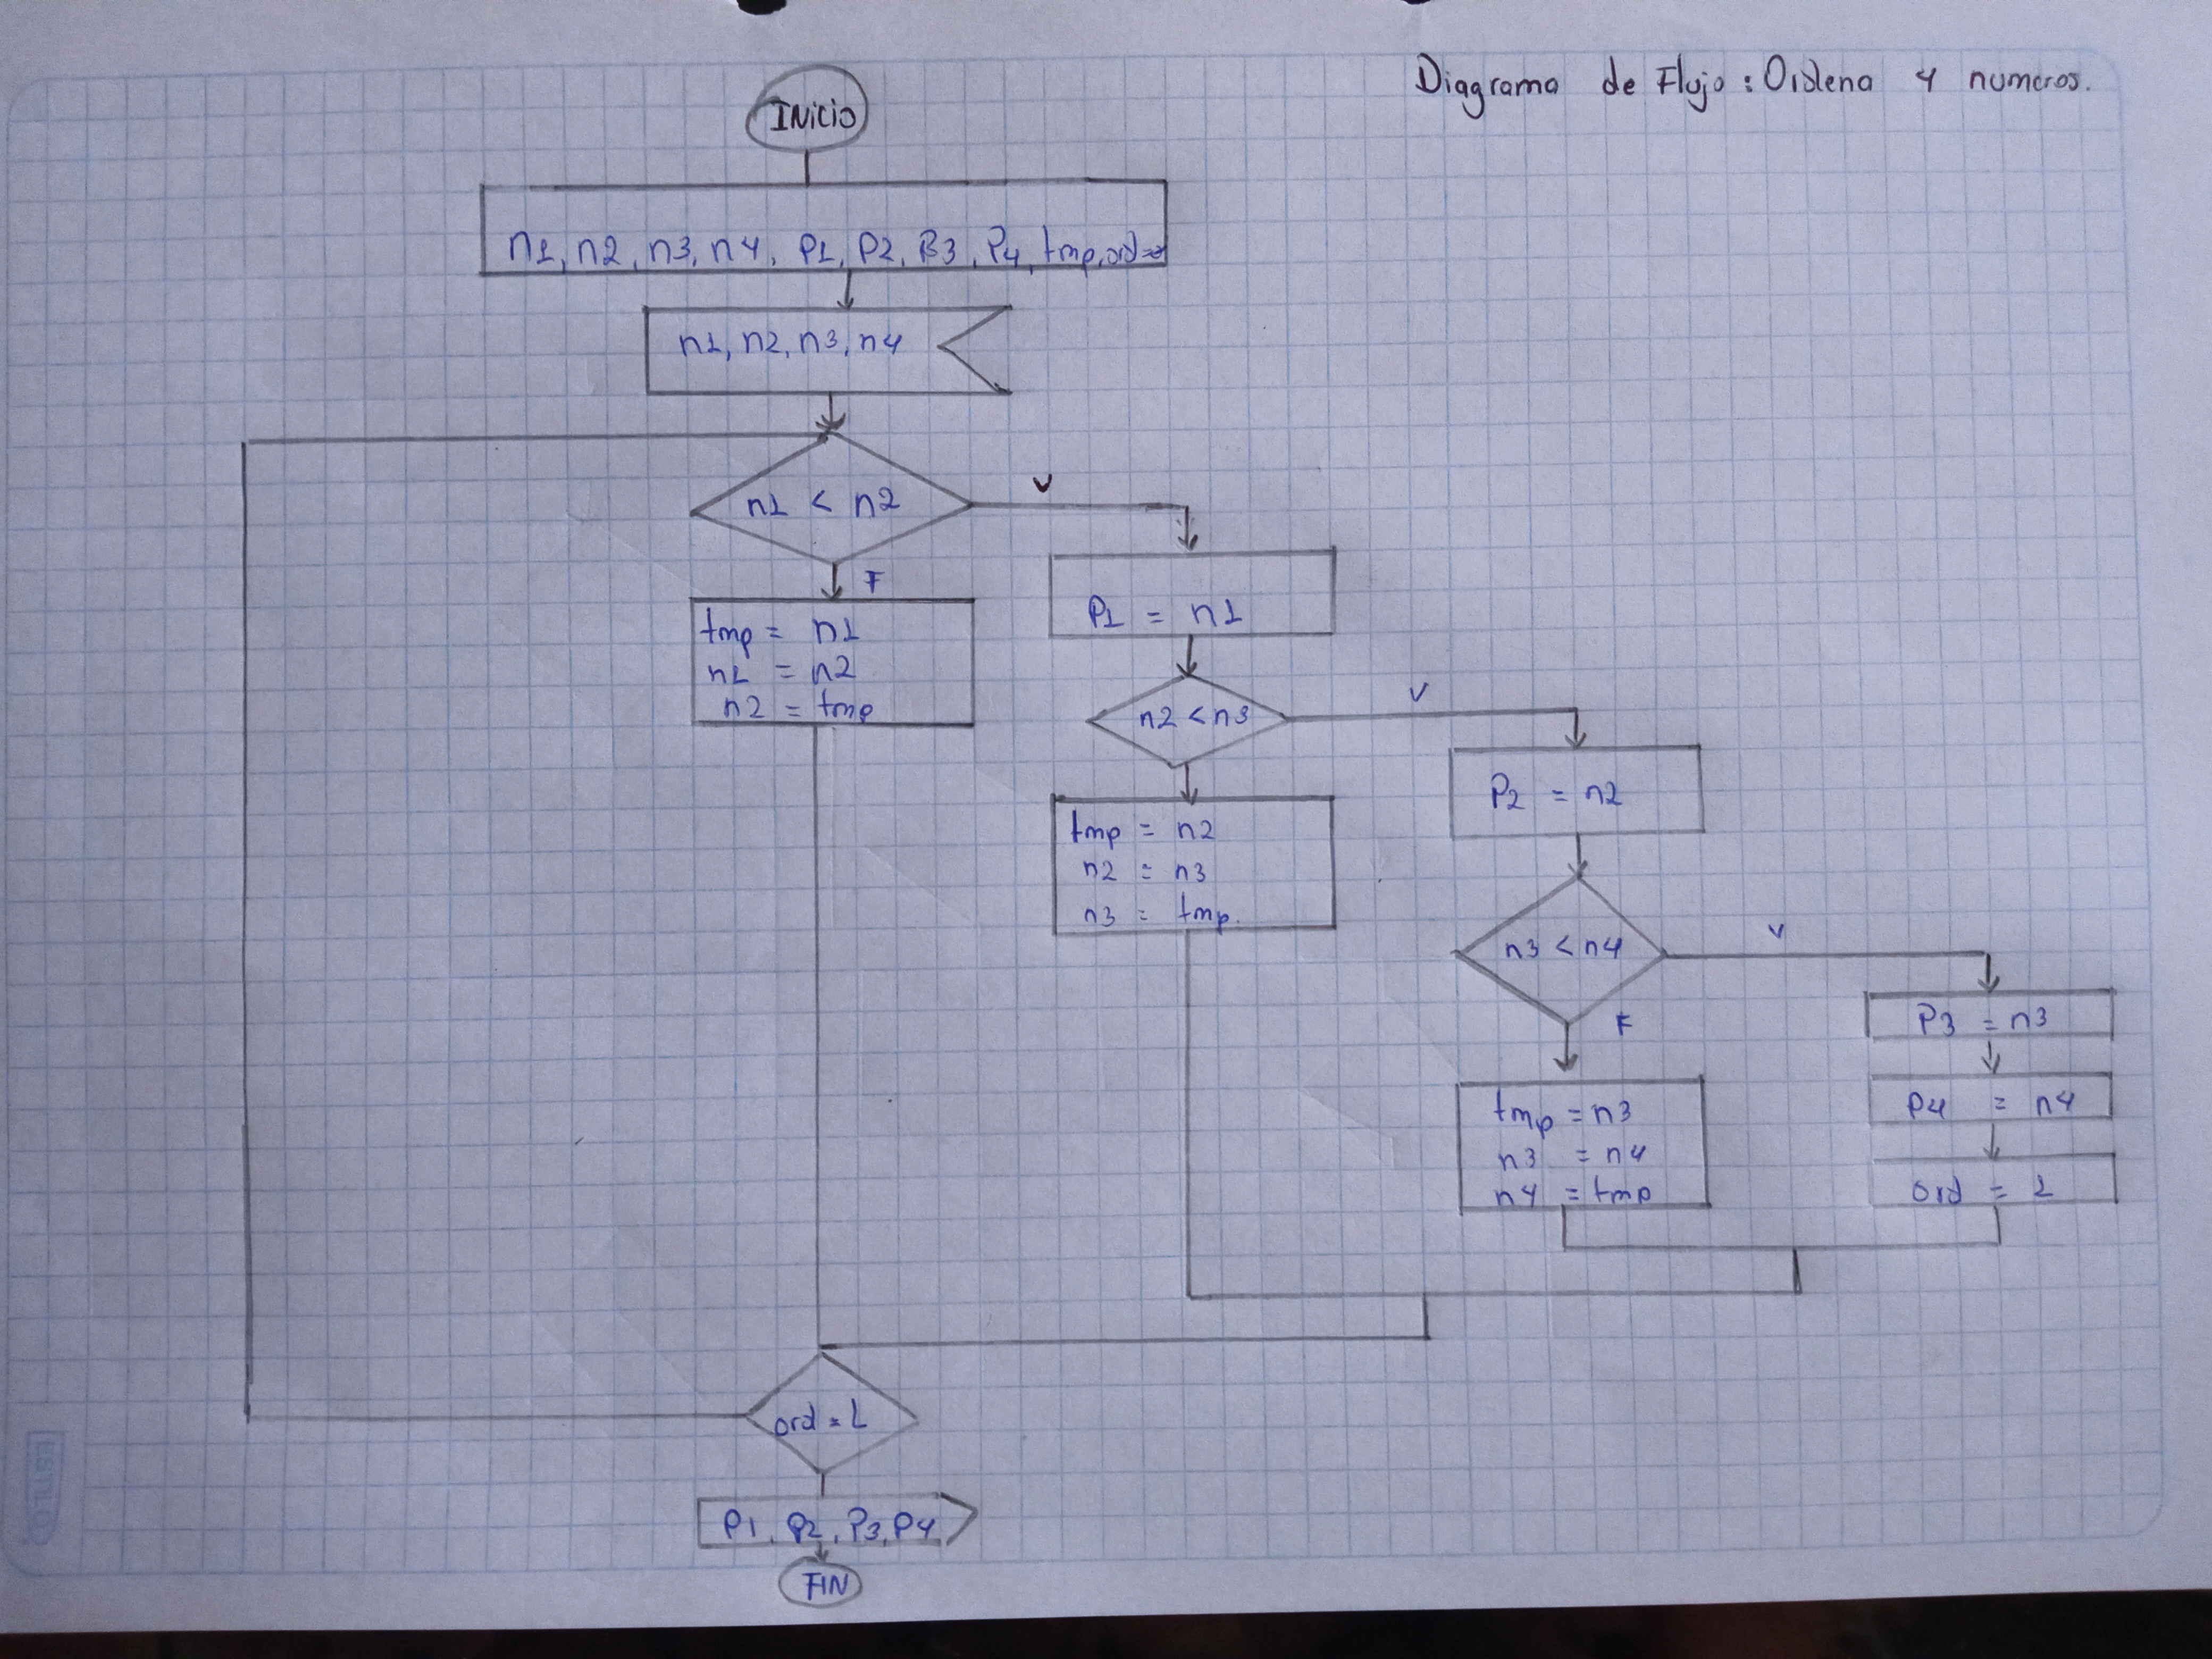 Diagrama de Flujo: Ordena 4 numeros.
INICIO
n1, n2, n3, n4, P1, P2, P3, P4, tmp, ord=0
n1, n2, n3, n4
n1 < n2
V
F
tmp = n1
n1 = n2
n2 = tmp
P1 = n1
n2 < n3
V
tmp = n2
n2 = n3
n3 = tmp.
P2 = n2
n3 < n4
V
F
tmp = n3
n3 = n4
n4 = tmp
P3 = n3
P4 = n4
ord = 1
ord = 1
P1, P2, P3, P4
FIN